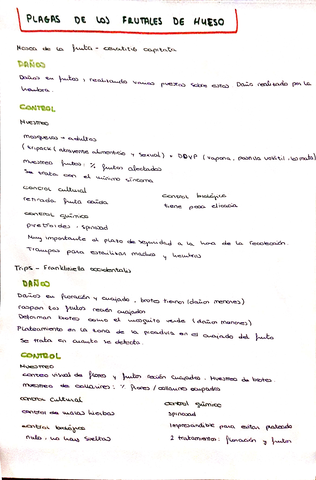 PLAGAS DE LOS FRUTALES DE HUESO
Mosca de la fruta - ceratitis capitata
DAÑOS
Daños en frutos, realizando varias puestas sobre estos. Daño realizado por la
hembra.
CONTROL
MUESTREO
mosqueros → adultos
(tripack (atrayente alimenticio y sexual) + DDVP (vapona, pastilla volátil,
muestreo frutos: % frutos afectados
Se trata con el mínimo síntoma
control cultural
retirada fruta caída
control biológico
tiene poca eficacia
control químico
piretroides, spinosad
Muy importante el plazo de seguridad a la hora de la recolección.
Trampas para esterilizar machos y hembras
Trips - Frankliniella occidentalis
DAÑOS
Daños en floración y cuajado, brotes tiernos (daños menores)
raspan los frutos recién cuajados
Deforman brotes como el mosquito verde (daños menores)
Plateamiento en la zona de la picadura en el cuajado del fruto
Se trata en cuanto se detecta.
CONTROL
MUESTREO
conteo visual de flores y frutos recién cuajados. Muestreo de brotes.
muestreo de collarines: % flores / collarines ocupados
control cultural
control de malas hierbas
control químico
Spinosad
Imprescindible para evitar plateado
2 tratamientos: floración y frutos
control biológico
nulo, no hay sueltas